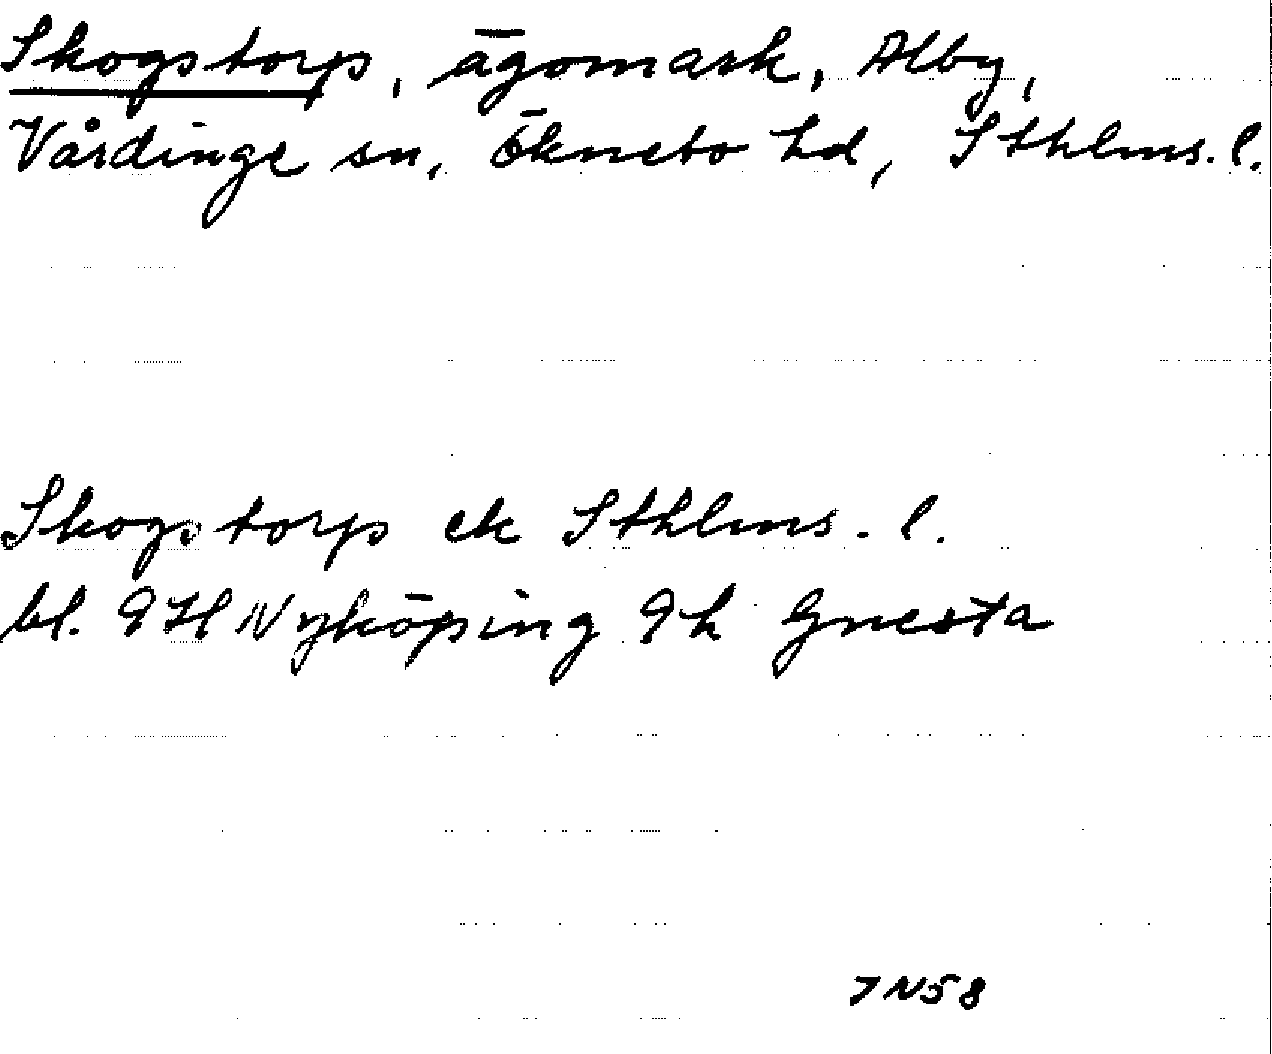 Skogstorp, ägomark, Alby,
Vårdinge sn, Öknebo hd, Sthlms. l.
Skogstorp ek Sthlms. l.
bl. 9H Nyköping 9h Gnesta
7N58